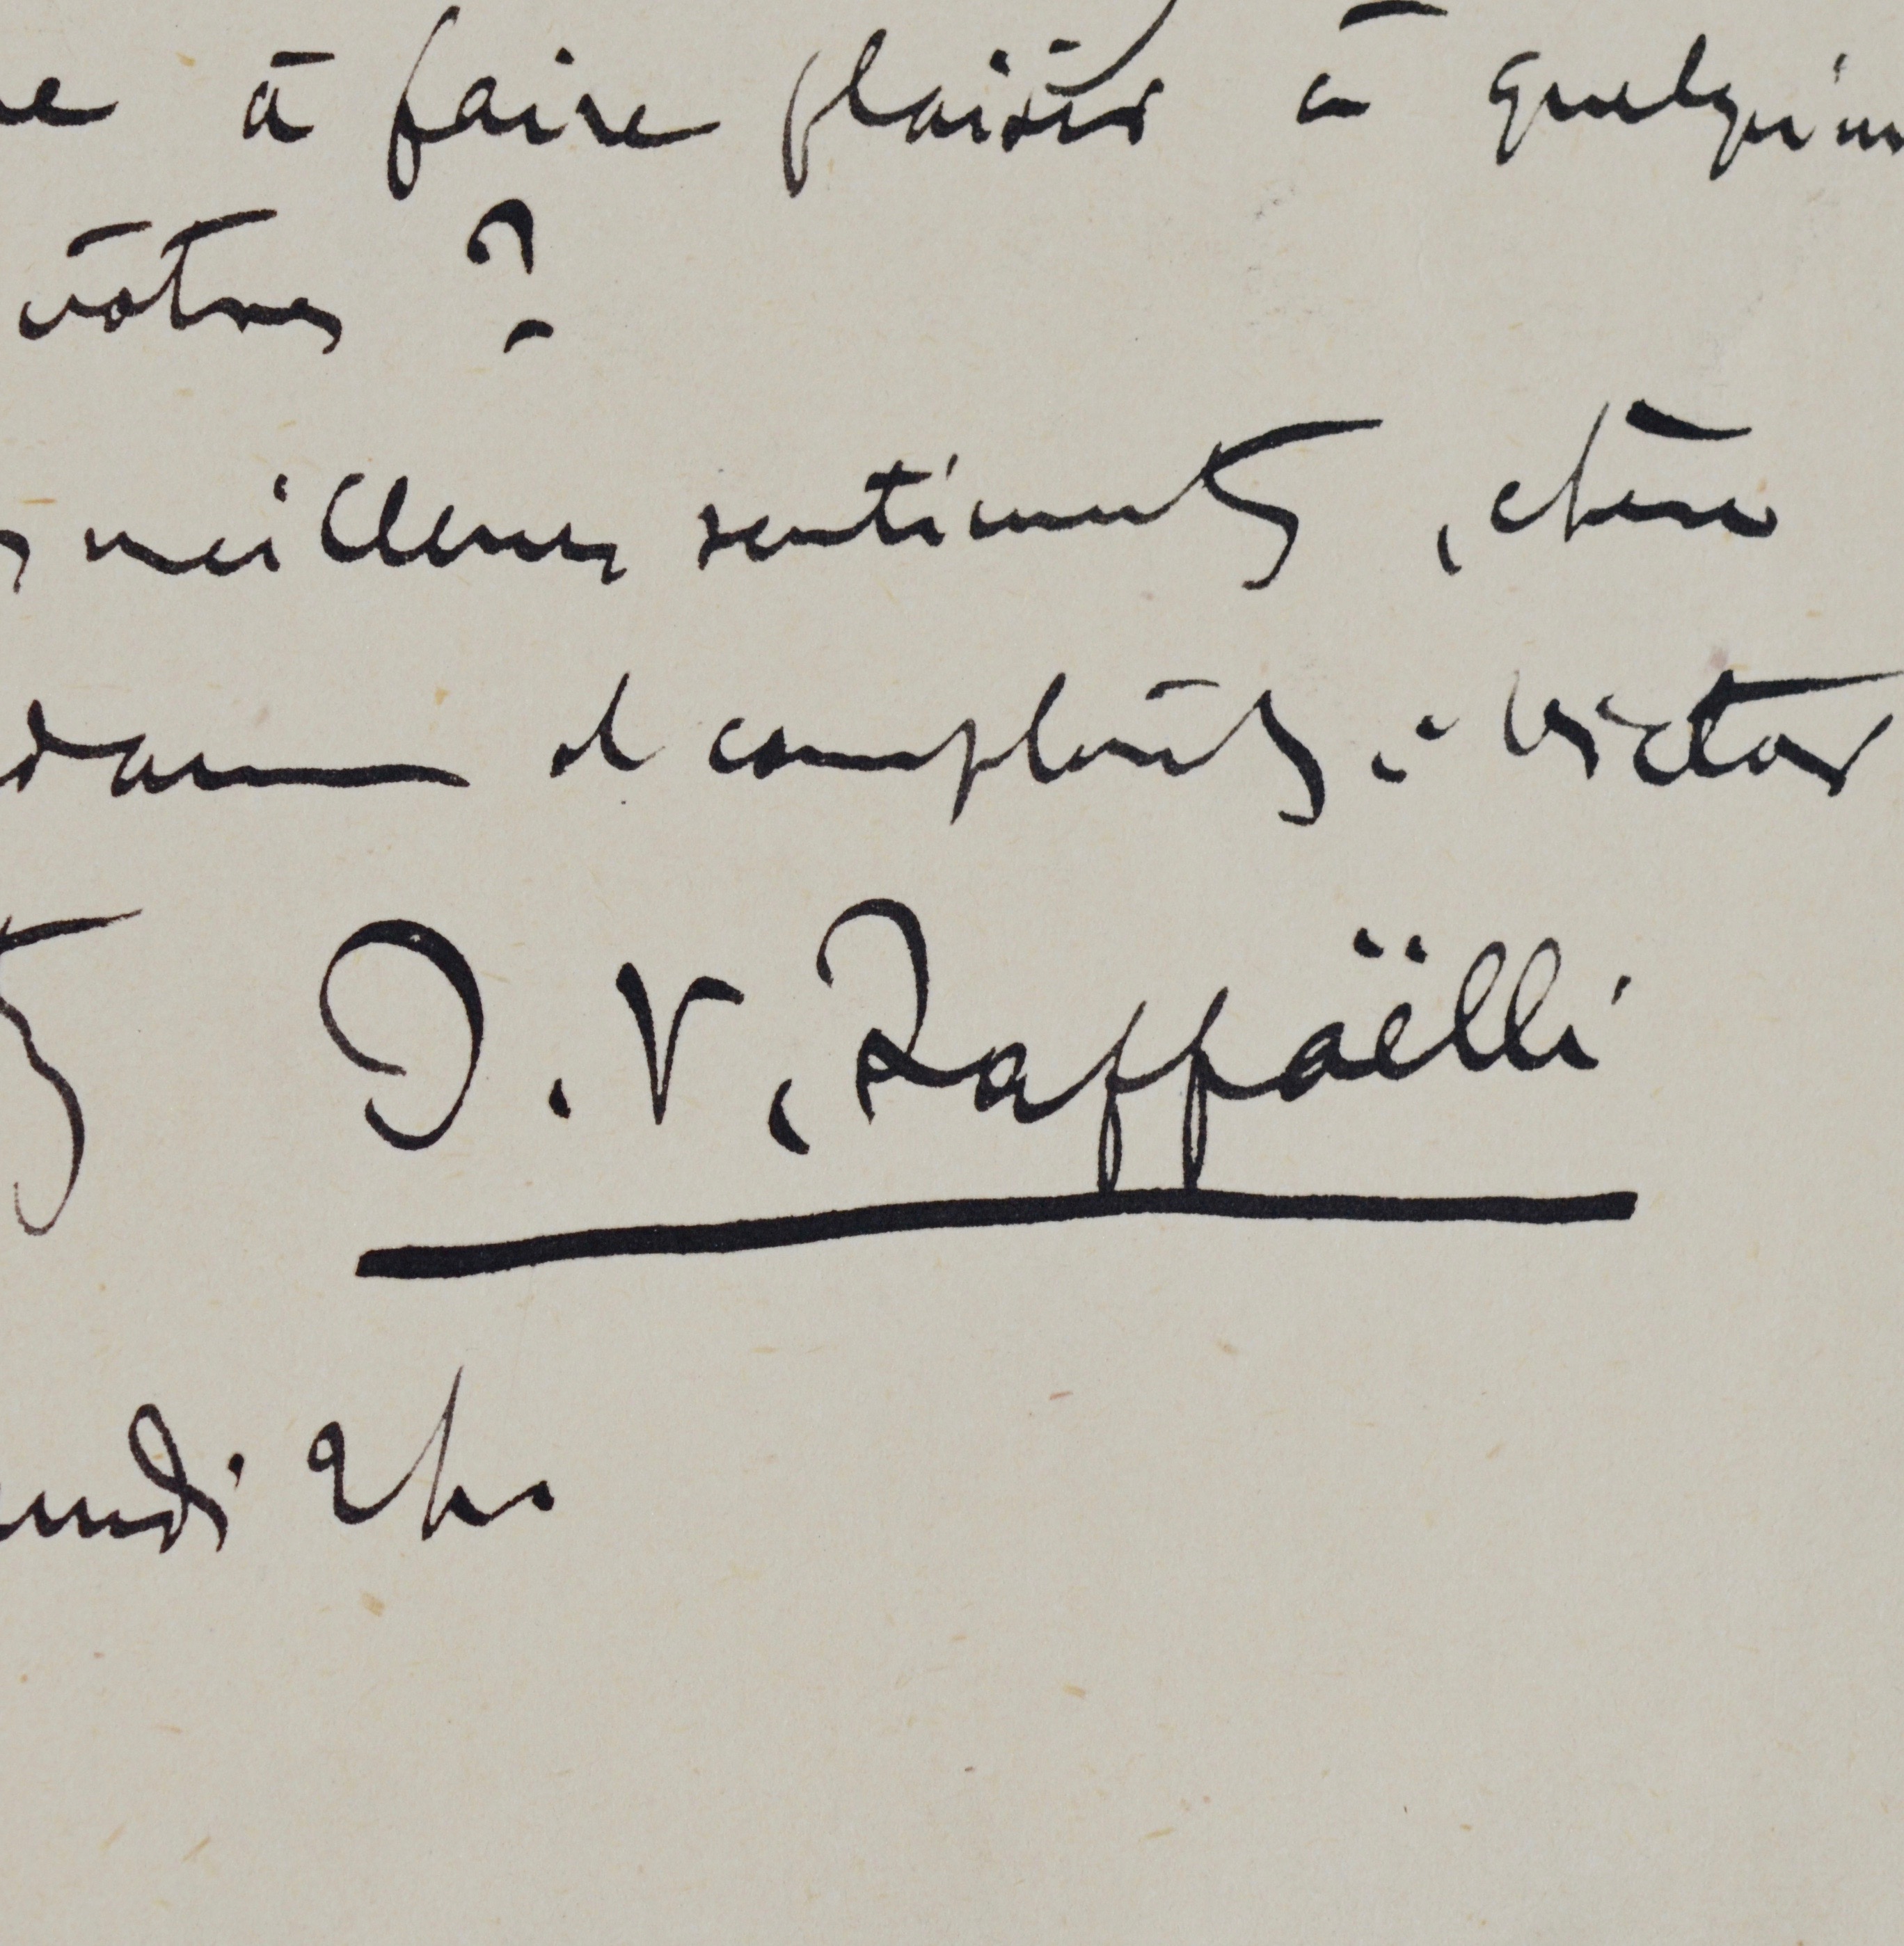 à faire plaisir à quelqu'un
vôtres ?
meilleurs sentiments, chère
et compliments à Victor
J. F. Raffaëlli